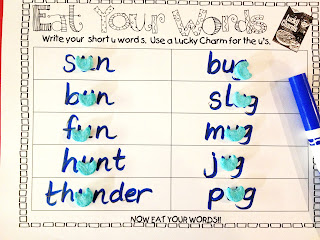 Eat Your Words
Write your short u words. Use a Lucky Charm for the u's.
sun bug
bun slug
fun mug
hunt jug
thunder pug
NOW EAT YOUR WORDS!!